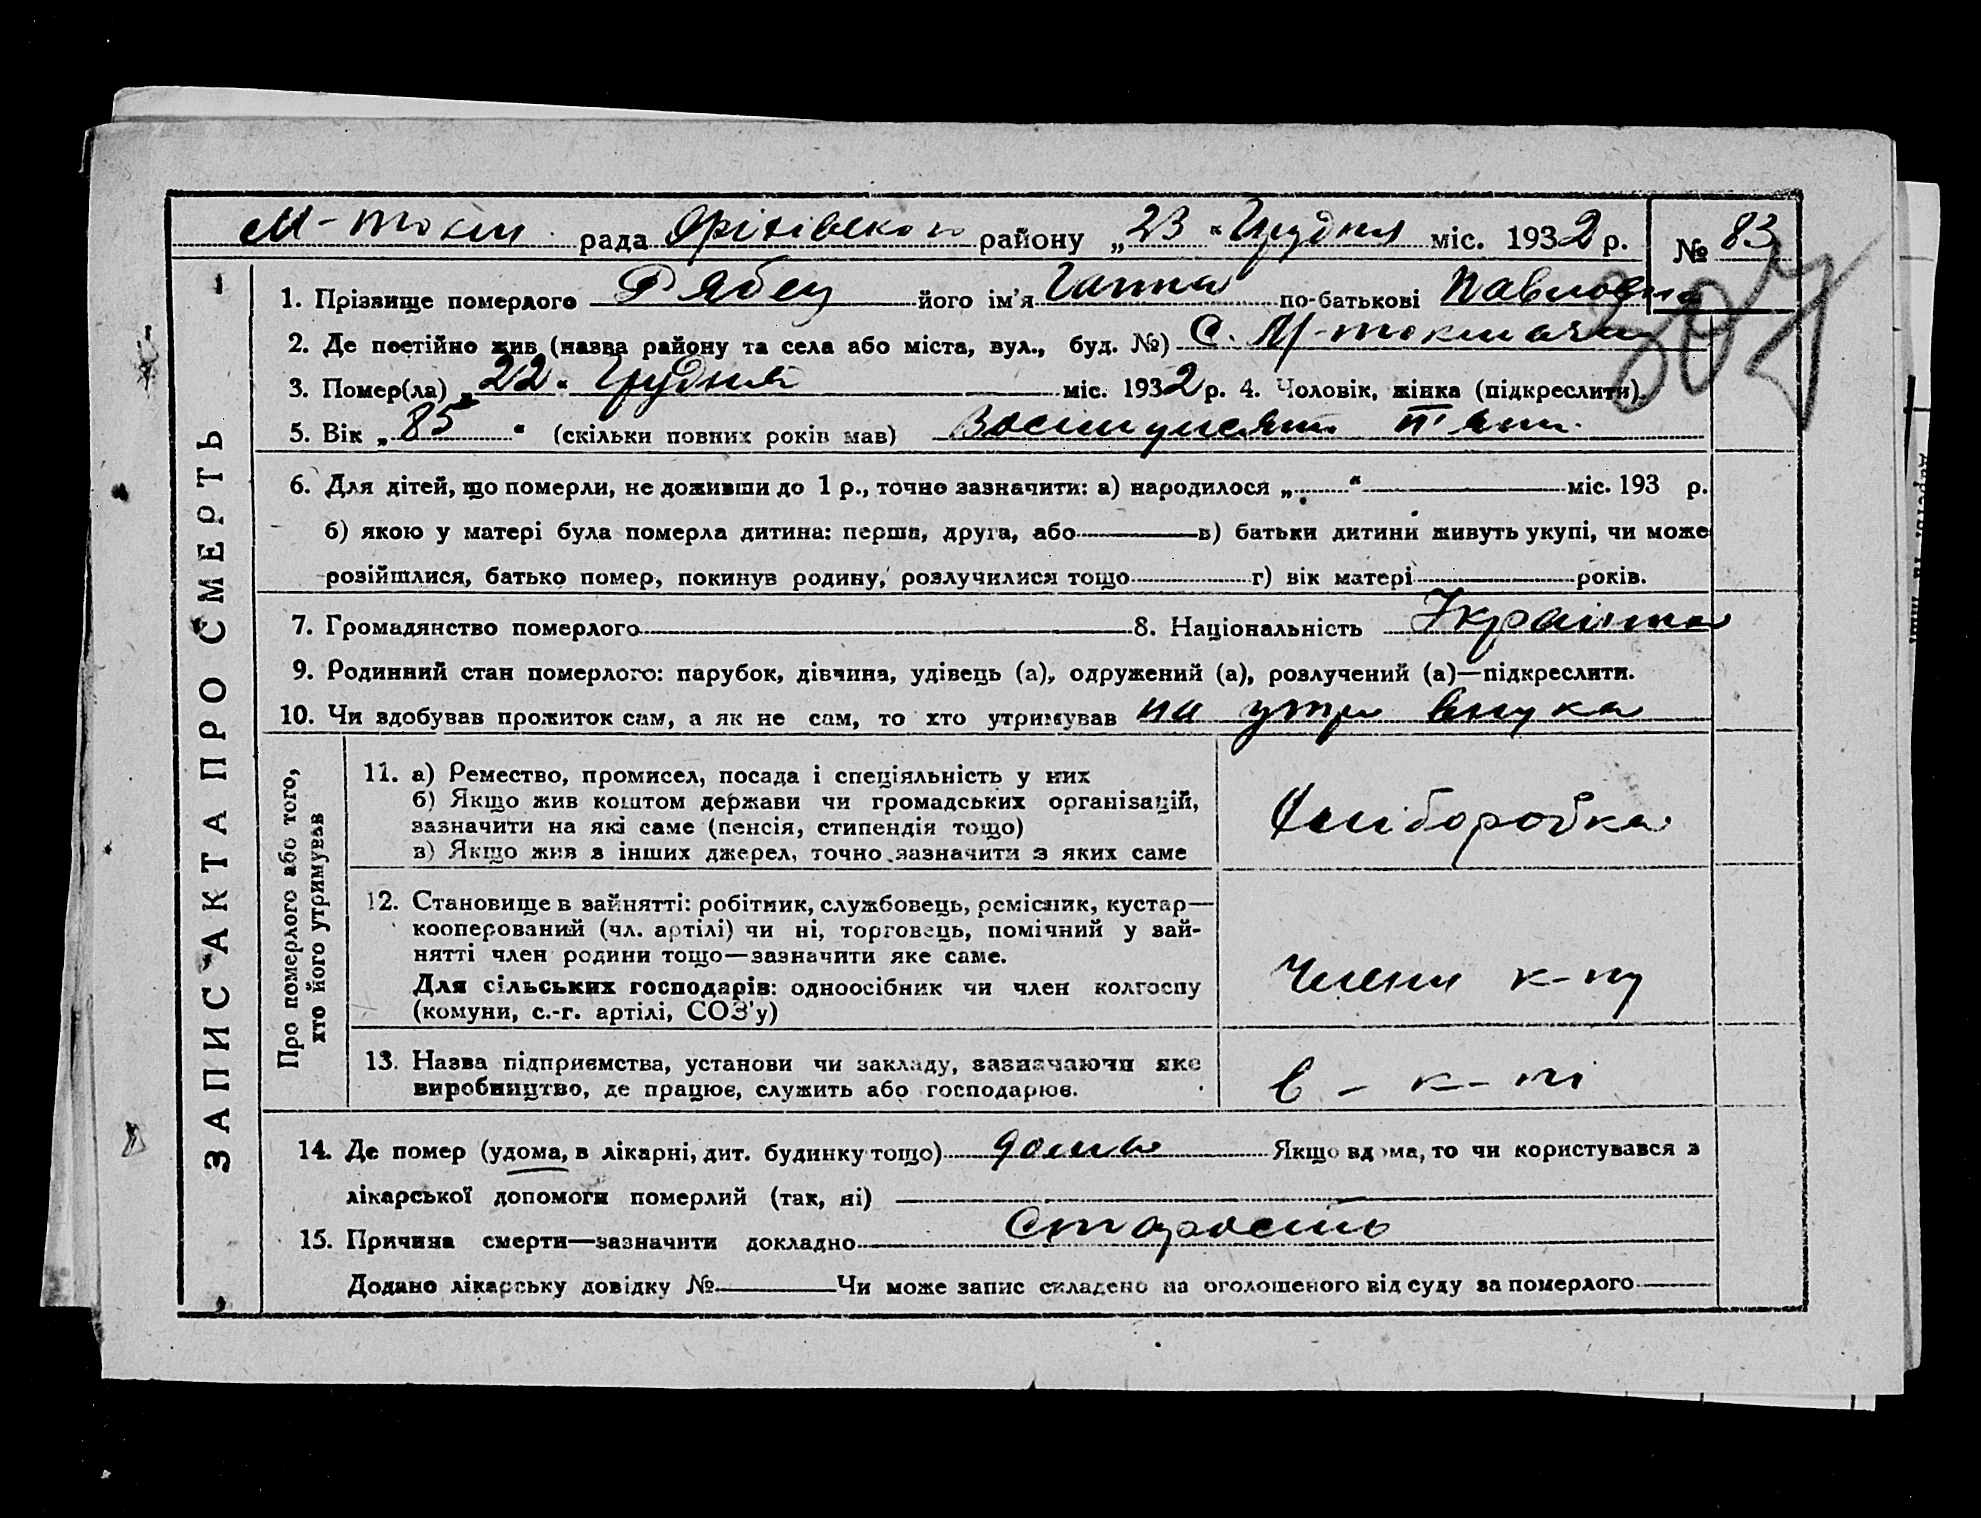 М-токм. рада Оріхівського району „23" Грудня міс. 1932 р. № 83
207
ЗАПИС АКТА ПРО СМЕРТЬ
1. Прізвище померлого Рябец його ім'я Ганна по-батькові Павловна
2. Де постійно жив (назва району та села або міста, вул., буд. №) С. М-токмачка
3. Помер(ла) „22" Грудня міс. 1932 р. 4. Чоловік, жінка (підкреслити).
5. Вік „85" (скільки повних років мав) Восімдисять п'ять.
6. Для дітей, що померли, не доживши до 1 р., точно зазначити: а) народилося „ " міс. 193 р.
б) якою у матері була померла дитина: перша, друга, або в) батьки дитини живуть укупі, чи може
розійшлися, батько помер, покинув родину, розлучилися тощо г) вік матері років.
7. Громадянство померлого 8. Національність Українка
9. Родинний стан померлого: парубок, дівчина, удівець (а), одружений (а), розлучений (а)—підкреслити.
10. Чи здобував прожиток сам, а як не сам, то хто утримував на утр внука
Про померлого або того,
хто його утримував
11. а) Ремество, промисел, посада і спеціяльність у них
б) Якщо жив коштом держави чи громадських організацій,
зазначити на які саме (пенсія, стипендія тощо)
в) Якщо жив з інших джерел, точно зазначити з яких саме
Хліборобка
12. Становище в зайнятті: робітник, службовець, ремісник, кустар—
кооперований (чл. артілі) чи ні, торговець, помічний у зай-
нятті член родини тощо—зазначити яке саме.
Для сільських господарів: одноосібник чи член колгоспу
(комуни, с.-г. артілі, СОЗ'у)
Члени к-пу
13. Назва підприємства, установи чи закладу, зазначаючи яке
виробництво, де працює, служить або господарює.
в - к-пі
14. Де помер (удома, в лікарні, дит. будинку тощо) дома Якщо вдома, то чи користувався з
лікарської допомоги померлий (так, ні)
15. Причина смерти—зазначити докладно Старость
Додано лікарську довідку № Чи може запис складено на оголошеного від суду за померлого